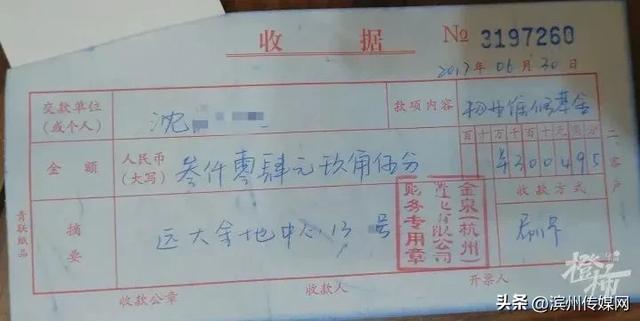 收据
№ 3197260
2017年06月30日
交款单位
(或个人)
沈
款项内容
物业维修基金
金额
人民币
(大写)
叁仟零肆元玖角伍分
百十万千百十元角分
¥300495
收款方式
刷卡
摘要
远大金地中心13 号
金泉(杭州)
有限公司
财务专用章
收款公章
收款人
开票人
二:客户
青联纸品
橙柿
头条 @滨州传媒网